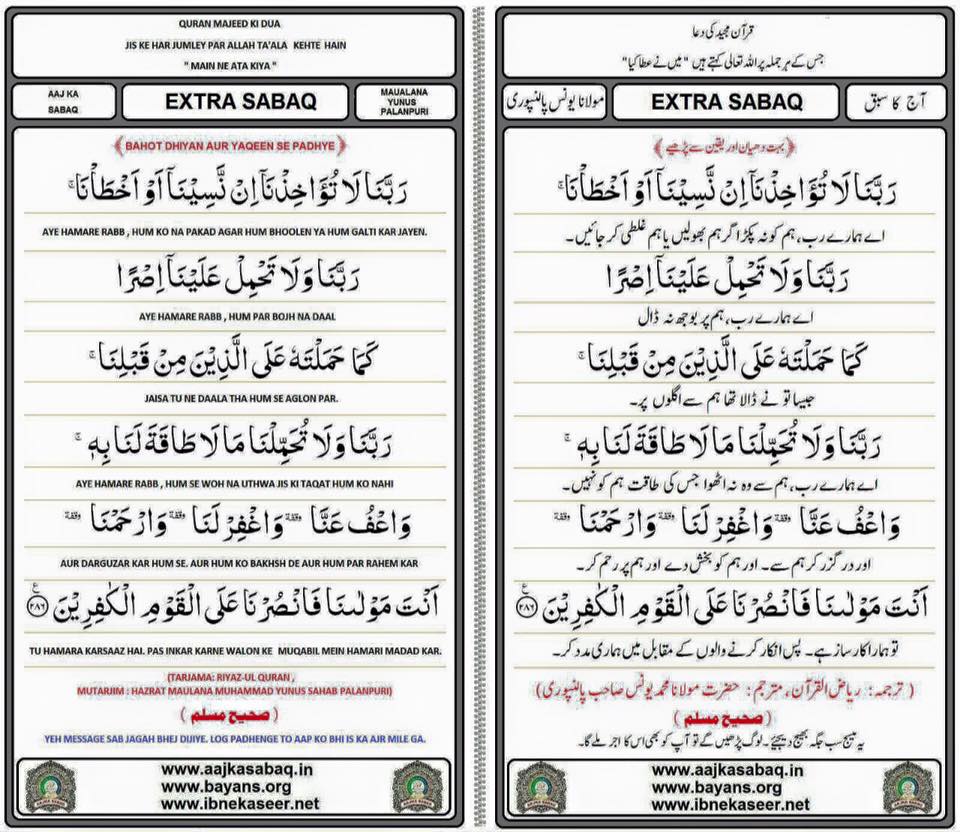 QURAN MAJEED KI DUA
JIS KE HAR JUMLEY PAR ALLAH TA'ALA KEHTE HAIN
" MAIN NE ATA KIYA "
AAJ KA SABAQ
EXTRA SABAQ
MAUALANA YUNUS PALANPURI
BAHOT DHIYAN AUR YAQEEN SE PADHYE
رَبَّنَا لَا تُؤَاخِذْنَآ اِنْ نَّسِيْنَآ اَوْ اَخْطَاْنَا ۚ
AYE HAMARE RABB , HUM KO NA PAKAD AGAR HUM BHOOLEN YA HUM GALTI KAR JAYEN.
رَبَّنَا وَلَا تَحْمِلْ عَلَيْنَآ اِصْرًا
AYE HAMARE RABB , HUM PAR BOJH NA DAAL
كَمَا حَمَلْتَهٗ عَلَى الَّذِيْنَ مِنْ قَبْلِنَا ۚ
JAISA TU NE DAALA THA HUM SE AGLON PAR.
رَبَّنَا وَلَا تُحَمِّلْنَا مَا لَا طَاقَةَ لَنَا بِهٖ ۚ
AYE HAMARE RABB , HUM SE WOH NA UTHWA JIS KI TAQAT HUM KO NAHI
وَاعْفُ عَنَّا وقفة وَاغْفِرْ لَنَا وقفة وَارْحَمْنَا وقفة
AUR DARGUZAR KAR HUM SE. AUR HUM KO BAKHSH DE AUR HUM PAR RAHEM KAR
اَنْتَ مَوْلٰىنَا فَانْصُرْنَا عَلَى الْقَوْمِ الْكٰفِرِيْنَ ۝۲۸۶ ع
TU HAMARA KARSAAZ HAI. PAS INKAR KARNE WALON KE MUQABIL MEIN HAMARI MADAD KAR.
(TARJAMA: RIYAZ-UL QURAN ,
MUTARJIM : HAZRAT MAULANA MUHAMMAD YUNUS SAHAB PALANPURI)
( صحیح مسلم )
YEH MESSAGE SAB JAGAH BHEJ DIJIYE. LOG PADHENGE TO AAP KO BHI IS KA AJR MILE GA.
www.aajkasabaq.in
www.bayans.org
www.ibnekaseer.net
قرآن مجید کی دعا
جس کے ہر جملہ پر اللہ تعالی کہتے ہیں "میں نے عطا کیا"
آج کا سبق
EXTRA SABAQ
مولانا یونس پالنپوری
بہت دھیان اور یقین سے پڑھیے
رَبَّنَا لَا تُؤَاخِذْنَآ اِنْ نَّسِيْنَآ اَوْ اَخْطَاْنَا ۚ
اے ہمارے رب، ہم کو نہ پکڑ اگر ہم بھولیں یا ہم غلطی کر جائیں۔
رَبَّنَا وَلَا تَحْمِلْ عَلَيْنَآ اِصْرًا
اے ہمارے رب، ہم پر بوجھ نہ ڈال
كَمَا حَمَلْتَهٗ عَلَى الَّذِيْنَ مِنْ قَبْلِنَا ۚ
جیسا تو نے ڈالا تھا ہم سے اگلوں پر۔
رَبَّنَا وَلَا تُحَمِّلْنَا مَا لَا طَاقَةَ لَنَا بِهٖ ۚ
اے ہمارے رب، ہم سے وہ نہ اٹھوا جس کی طاقت ہم کو نہیں۔
وَاعْفُ عَنَّا وقفة وَاغْفِرْ لَنَا وقفة وَارْحَمْنَا وقفة
اور درگزر کر ہم سے۔ اور ہم کو بخش دے اور ہم پر رحم کر۔
اَنْتَ مَوْلٰىنَا فَانْصُرْنَا عَلَى الْقَوْمِ الْكٰفِرِيْنَ ۝۲۸۶ ع
تو ہمارا کارساز ہے۔ پس انکار کرنے والوں کے مقابل میں ہماری مدد کر۔
( ترجمہ: ریاض القرآن، مترجم: حضرت مولانا محمد یونس صاحب پالنپوری )
( صحیح مسلم )
یہ میسج سب جگہ بھیج دیجیئے۔ لوگ پڑھیں گے تو آپ کو بھی اس کا اجر ملے گا۔
www.aajkasabaq.in
www.bayans.org
www.ibnekaseer.net